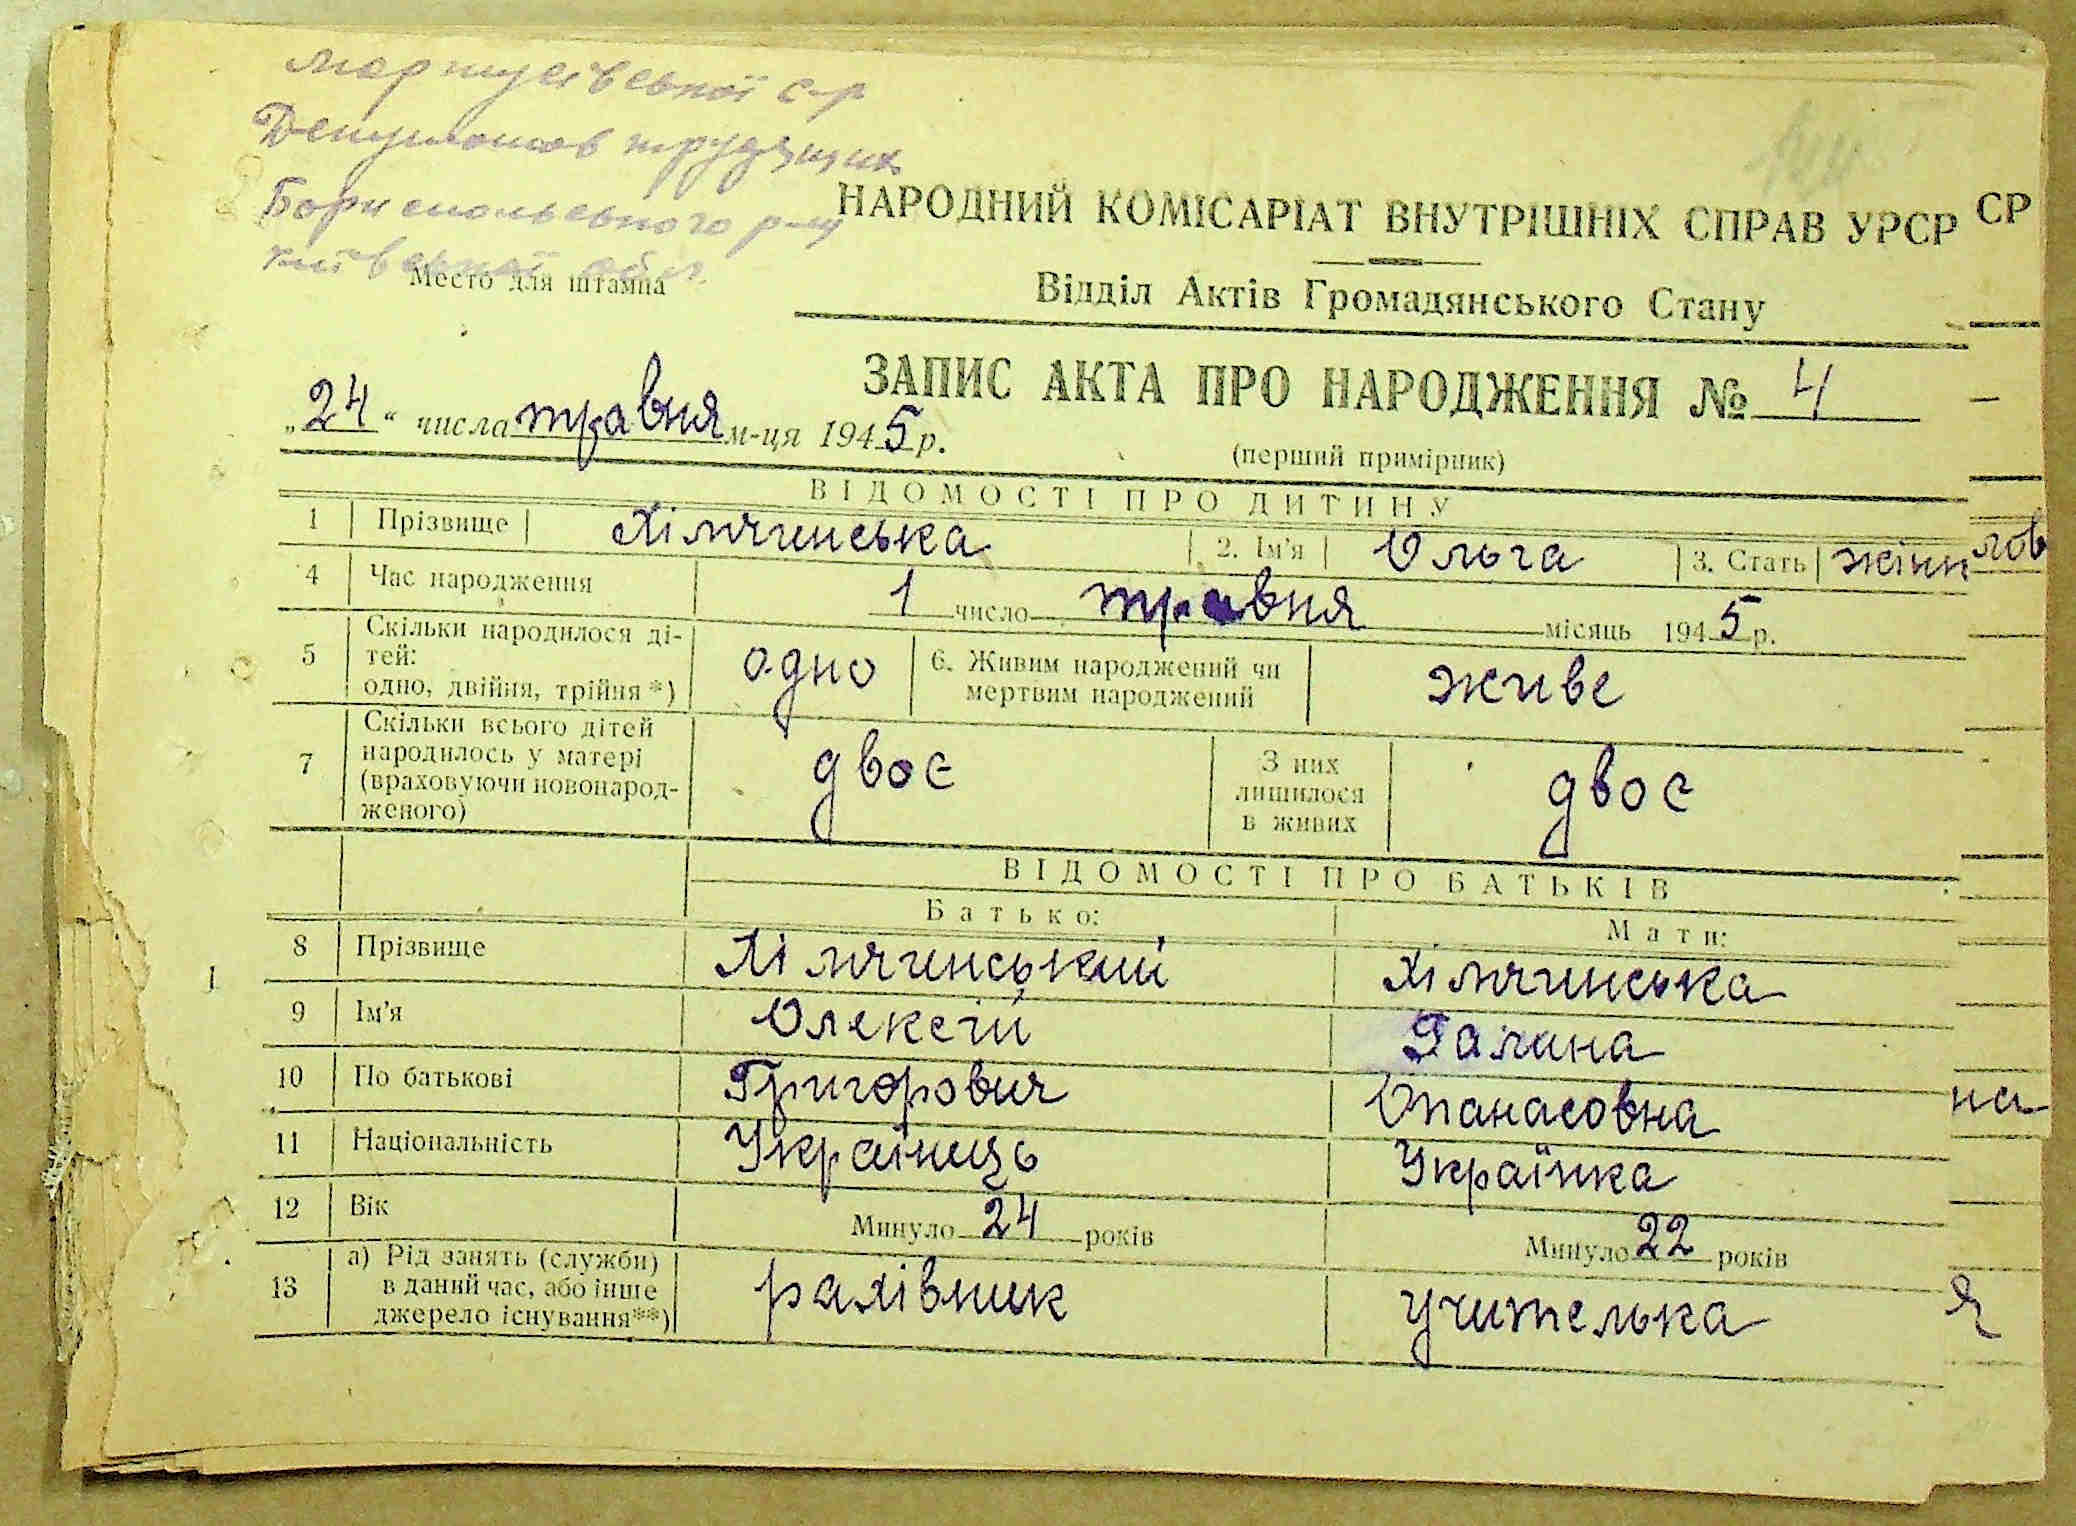 Мартусівської с-р
Депутатов трудящих
Бориспольського р-ну
Київської обл.
Место для штампа
НАРОДНИЙ КОМІСАРІАТ ВНУТРІШНІХ СПРАВ УРСР СР
Відділ Актів Громадянського Стану
ЗАПИС АКТА ПРО НАРОДЖЕННЯ № 4
„24“ числа травня м-ця 1945 р.
(перший примірник)
ВІДОМОСТІ ПРО ДИТИНУ
1 Прізвище Хімичинська 2. Ім'я Ольга 3. Стать жінк лов
4 Час народження 1 число травня місяць 1945 р.
5 Скільки народилося ді-
тей:
одно, двійня, трійня*) одно 6. Живим народжений чи
мертвим народжений живе
7 Скільки всього дітей
народилось у матері
(враховуючи новонарод-
женого) двоє З них
лишилося
в живих двоє
ВІДОМОСТІ ПРО БАТЬКІВ
Батько: Мати:
8 Прізвище Хімичинський Хімичинська
9 Ім'я Олексій Галина
10 По батькові Григорович Опанасовна на
11 Національність Українець Українка
12 Вік Минуло 24 років Минуло 22 років
13 а) Рід занять (служби)
в даний час, або інше
джерело існування**) рахівник учителька я